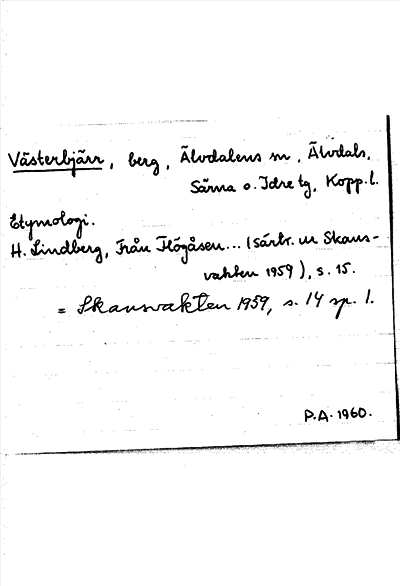 Västerbjärr, berg, Älvdalens sn, Älvdals,
Särna o. Idre tg, Kopp.l.
Etymologi.
H. Lindberg, Från Högåsen... (särtr. ur Skans-
vakten 1959), s. 15.
= Skansvakten 1959, s. 14 sp. 1.
P.A. 1960.